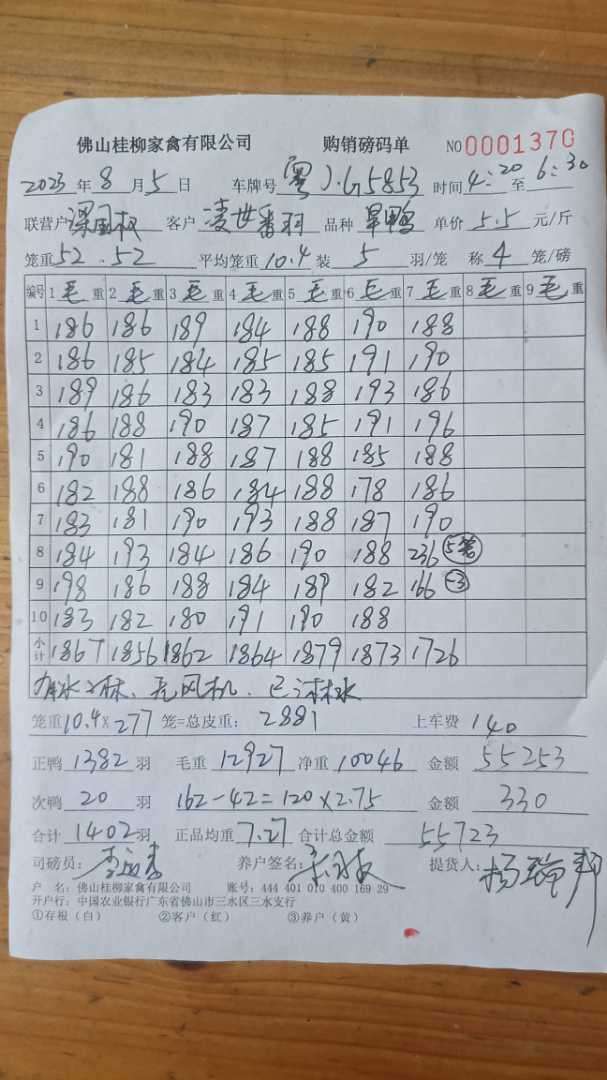 佛山桂柳家禽有限公司 购销磅码单 NO 0001370
2023 年 8 月 5 日 车牌号 粤J.G5853 时间 4:20 至 6:30
联营户 梁国权 客户 凌世番羽 品种 旱鸭 单价 5.5 元/斤
笼重 52.52 平均笼重 10.4 装 5 羽/笼 称 4 笼/磅
编号 1 毛 重 2 毛 重 3 毛 重 4 毛 重 5 毛 重 6 毛 重 7 毛 重 8 毛 重 9 毛 重
1 186 186 189 184 188 190 188
2 186 185 184 185 185 191 190
3 189 186 183 183 188 193 186
4 186 188 190 187 185 191 196
5 190 181 188 187 188 185 188
6 182 188 186 184 188 178 186
7 183 181 190 193 188 187 190
8 184 193 184 186 190 188 236 5笼
9 198 186 188 184 189 182 166 -3
10 183 182 180 191 190 188
小计 1867 1856 1862 1864 1879 1873 1726
无风机、已淋水
笼重 10.4 x 277 笼=总皮重: 2881 上车费 140
正鸭 1382 羽 毛重 12927 净重 10046 金额 55253
次鸭 20 羽 162-42=120×2.75 金额 330
合计 1402 羽 正品均重 7.27 合计总金额 55723
司磅员: 养户签名: 提货人:
户 名: 佛山桂柳家禽有限公司 账号: 444 401 010 400 169 29
开户行: 中国农业银行广东省佛山市三水区三水支行
①存根(白) ②客户(红) ③养户(黄)